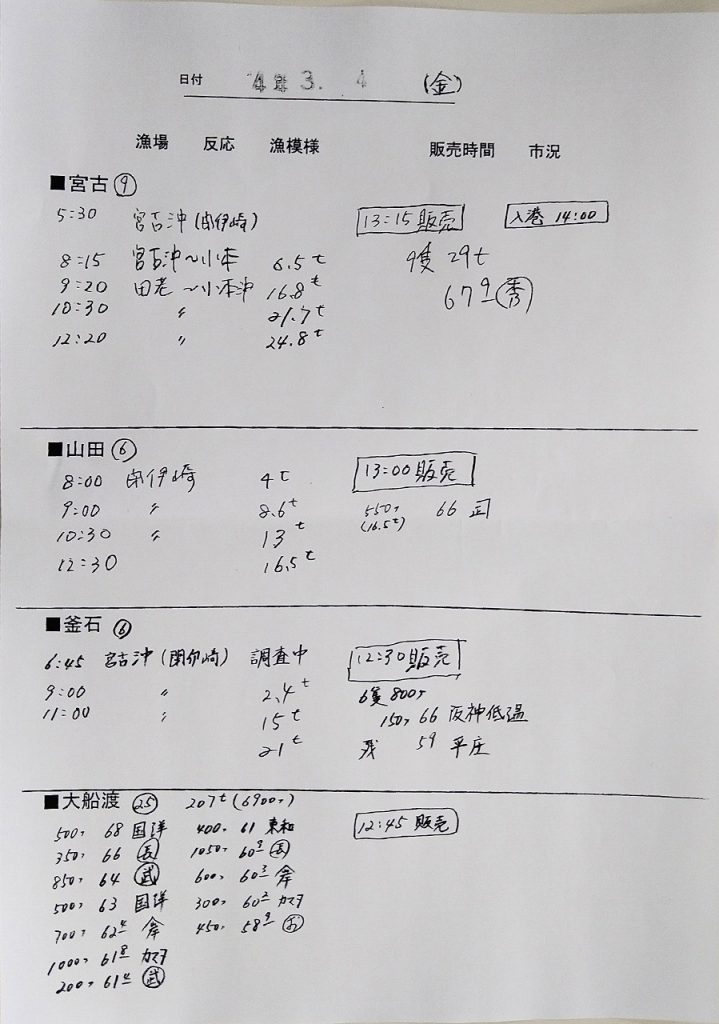 日付 4. 3. 4 (金)
漁場 反応 漁模様 販売時間 市況
■宮古 ⑨
5:30 宮古沖(閉伊崎) 13:15 販売 入港 14:00
8:15 宮古沖〜小本 6.5t 9隻 29t
9:20 田老〜小本沖 16.8t 67⁹ ㊙
10:30 〃 21.7t
12:20 〃 24.8t
■山田 ⑥
8:00 閉伊崎 4t 13:00 販売
9:00 〃 8.6t 550, 66
10:30 〃 13t (16.5t)
12:30 16.5t
■釜石 ⑥
6:45 宮古沖(閉伊崎) 調査中 12:30 販売
9:00 〃 2.4t 6隻 800,
11:00 〃 15t 150, 66 阪神低温
21t 残 59 平庄
■大船渡 ㉕ 207t (6900,) 12:45 販売
500, 68 国洋 400, 61 東和
350, 66 長 1050, 60⁹ 長
850, 64 武 600, 60³
500, 63 国洋 300, 60² カマヨ
700, 62⁴ 450, 58⁹ お
1000, 61⁸ カマヨ
200, 61⁴ 武